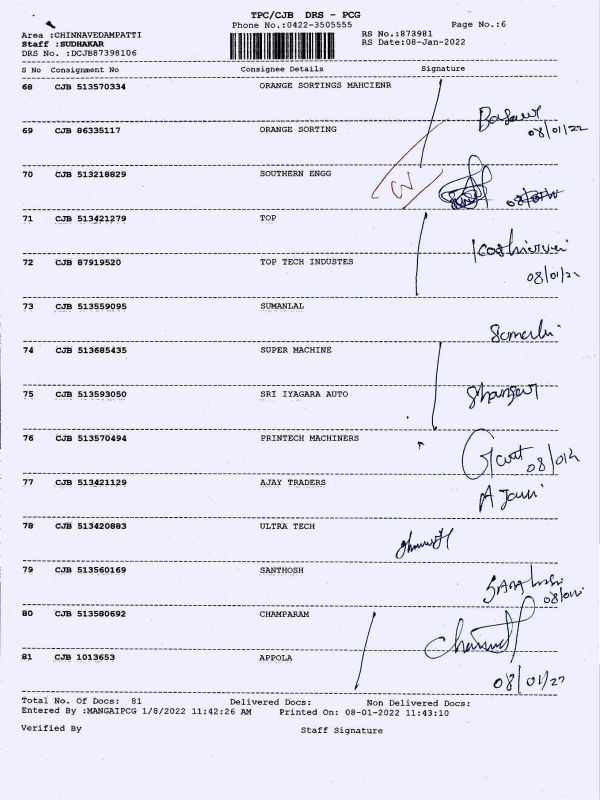 TPC/CJB DRS - PCG
Phone No.:0422-3505555 Page No.:6
Area :CHINNAVEDAMPATTI RS No.:873981
Staff :SUDHAKAR RS Date:08-Jan-2022
DRS No. :DCJB87398106
S No Consignment No Consignee Details Signature
68 CJB 513570334 ORANGE SORTINGS MAHCIENR
69 CJB 86335117 ORANGE SORTING
08/01/22
70 CJB 513218829 SOUTHERN ENGG
71 CJB 513421279 TOP
72 CJB 87919520 TOP TECH INDUSTES
08/01/22
73 CJB 513559095 SUMANLAL
74 CJB 513685435 SUPER MACHINE
75 CJB 513593050 SRI IYAGARA AUTO
76 CJB 513570494 PRINTECH MACHINERS
77 CJB 513421129 AJAY TRADERS
78 CJB 513420883 ULTRA TECH
79 CJB 513560169 SANTHOSH
80 CJB 513580692 CHAMPARAM
81 CJB 1013653 APPOLA
08/01/22
Total No. Of Docs: 81 Delivered Docs: Non Delivered Docs:
Entered By :MANGAIPCG 1/8/2022 11:42:26 AM Printed On: 08-01-2022 11:43:10
Verified By Staff Signature